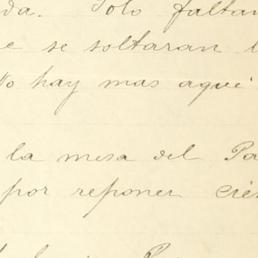 da. Solo faltan
e se soltaran l
No hay mas aqué
la mesa del Pa
por reponer cré